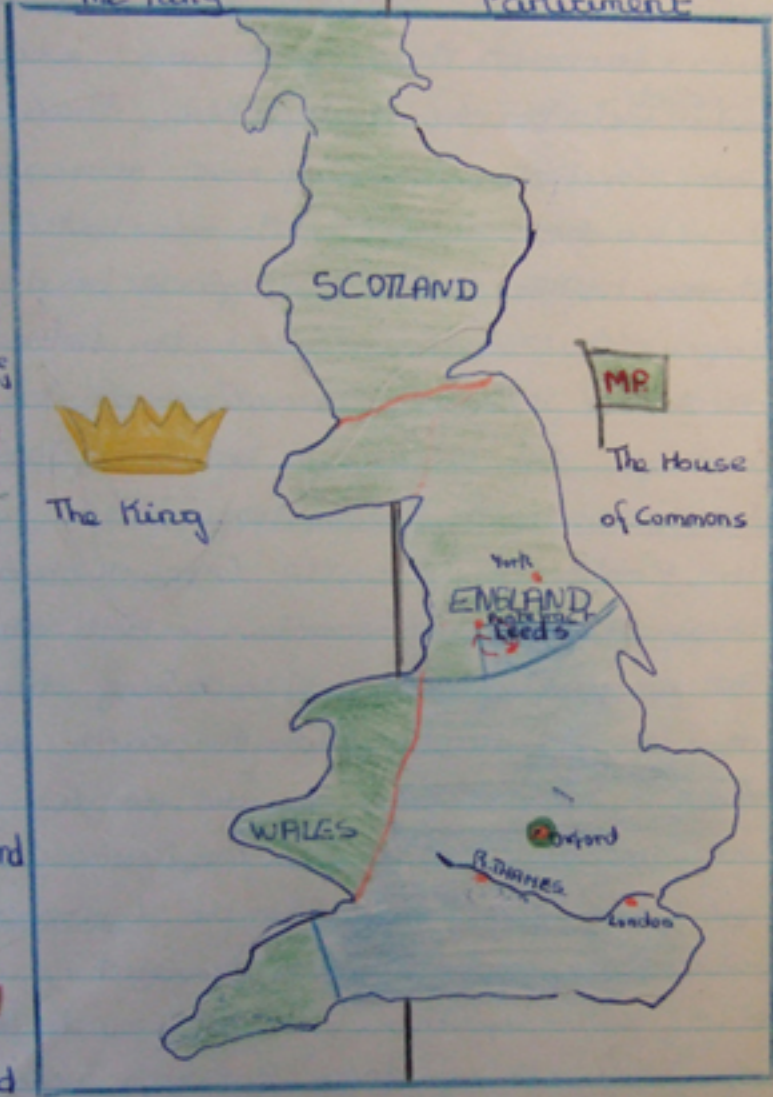 The King
Parlitiment
SCOTLAND
MP.
The House
of Commons
The King
York
ENGLAND
Leeds
WALES
Oxford
R. THAMES
London